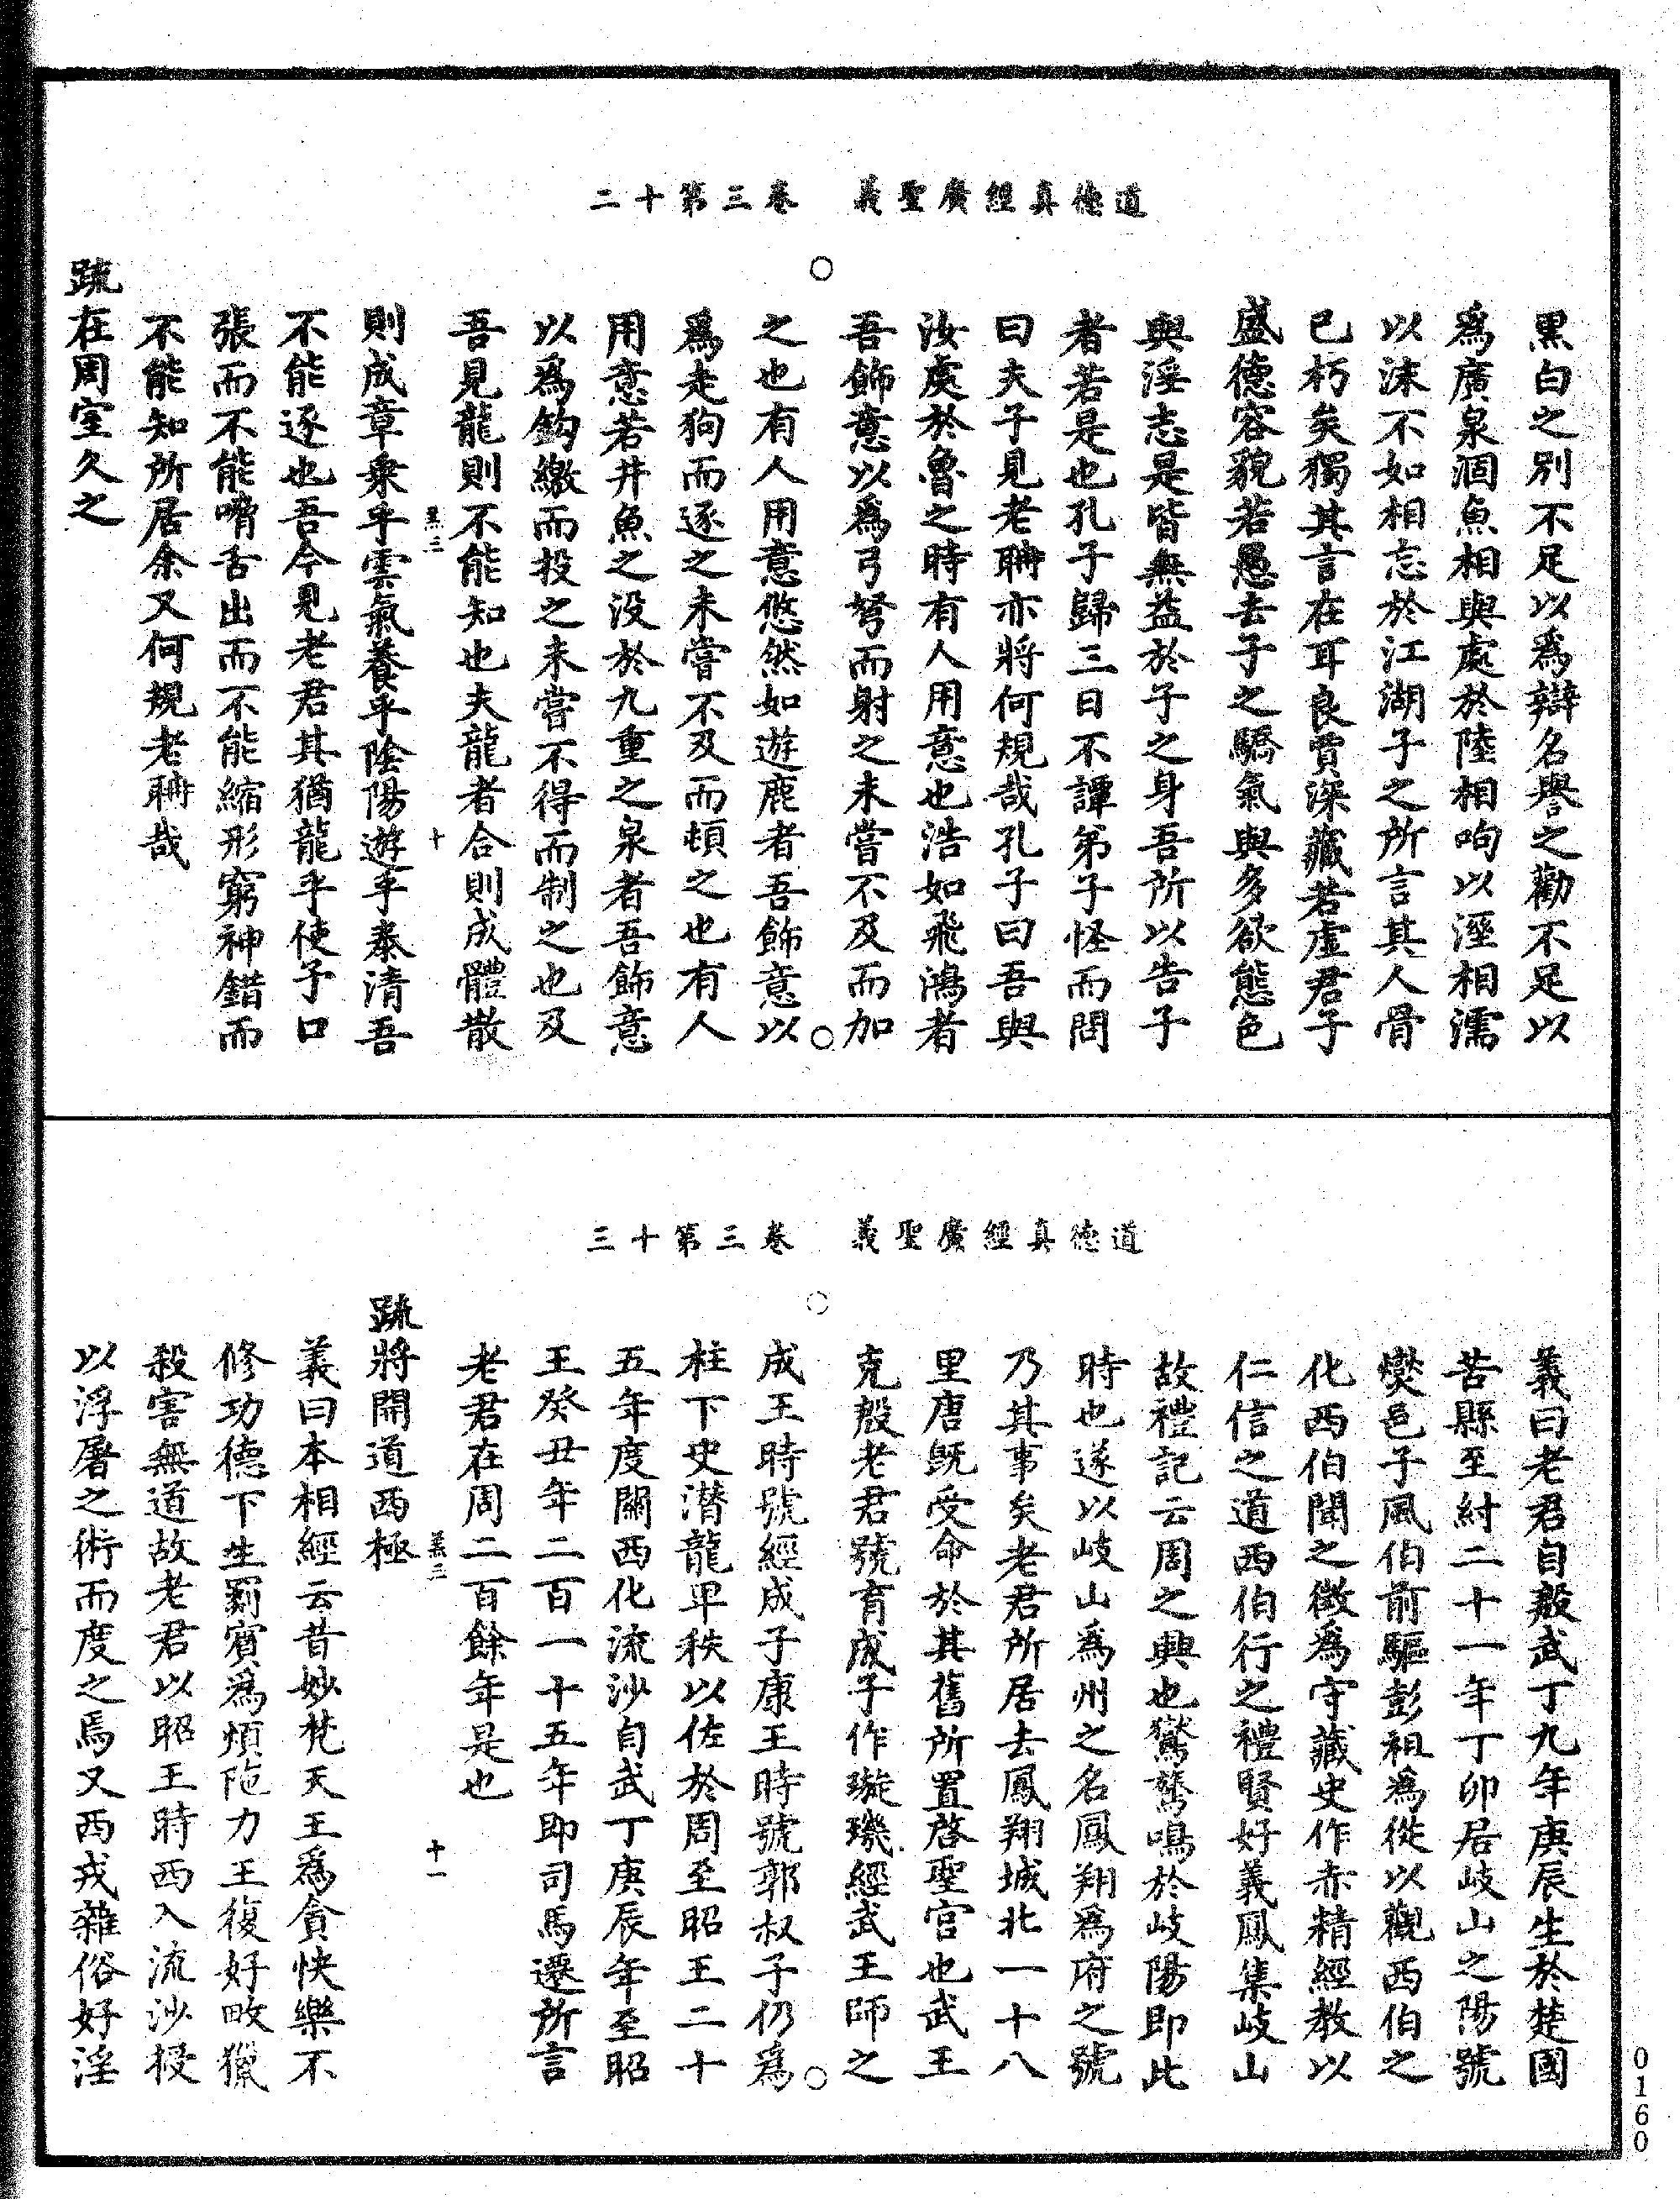 道德真經廣聖義　卷三第十二
黑白之別不足以爲辯名譽之勸不足以
爲廣泉涸魚相與處於陸相呴以溼相濡
以沫不如相忘於江湖子之所言其人骨
已朽矣獨其言在耳良賈深藏若虛君子
盛德容貌若愚去子之驕氣與多欲態色
與淫志是皆無益於子之身吾所以告子
者若是也孔子歸三日不譚弟子怪而問
曰夫子見老聃亦將何規哉孔子曰吾與
汝處於魯之時有人用意也浩如飛鴻者
吾飾意以爲弓弩而射之未嘗不及而加
之也有人用意悠然如遊鹿者吾飾意以
爲走狗而逐之未嘗不及而頓之也有人
用意若井魚之没於九重之泉者吾飾意
以爲鈎繳而投之未嘗不得而制之也及
吾見龍則不能知也夫龍者合則成體散
十
則成章乘乎雲氣養乎陰陽遊乎泰清吾
不能逐也吾今見老君其猶龍乎使予口
張而不能嚼舌出而不能縮形窮神錯而
不能知所居余又何規老聃哉
疏在周室久之
道德真經廣聖義　卷三第十三
義曰老君自殷武丁九年庚辰生於楚國
苦縣至紂二十一年丁卯居岐山之陽號
爕邑子風伯前驅彭祖爲從以觀西伯之
化西伯聞之徵爲守藏史作赤精經教以
仁信之道西伯行之禮賢好義鳳集岐山
故禮記云周之興也鸑鷟鳴於岐陽即此
時也遂以岐山爲州之名鳳翔爲府之號
乃其事矣老君所居去鳳翔城北一十八
里唐既受命於其舊所置啓聖宫也武王
克殷老君號育成子作璇璣經武王師之
成王時號經成子康王時號郭叔子仍爲
柱下史潛龍卑秩以佐於周至昭王二十
五年度關西化流沙自武丁庚辰年至昭
王癸丑年二百一十五年即司馬遷所言
老君在周二百餘年是也
十一
疏將開道西極
義曰本相經云昔妙梵天王爲貪快樂不
修功德下生罽賓爲煩陁力王復好畋獵
殺害無道故老君以昭王時西入流沙授
以浮屠之術而度之焉又西戎雜俗好淫
0160